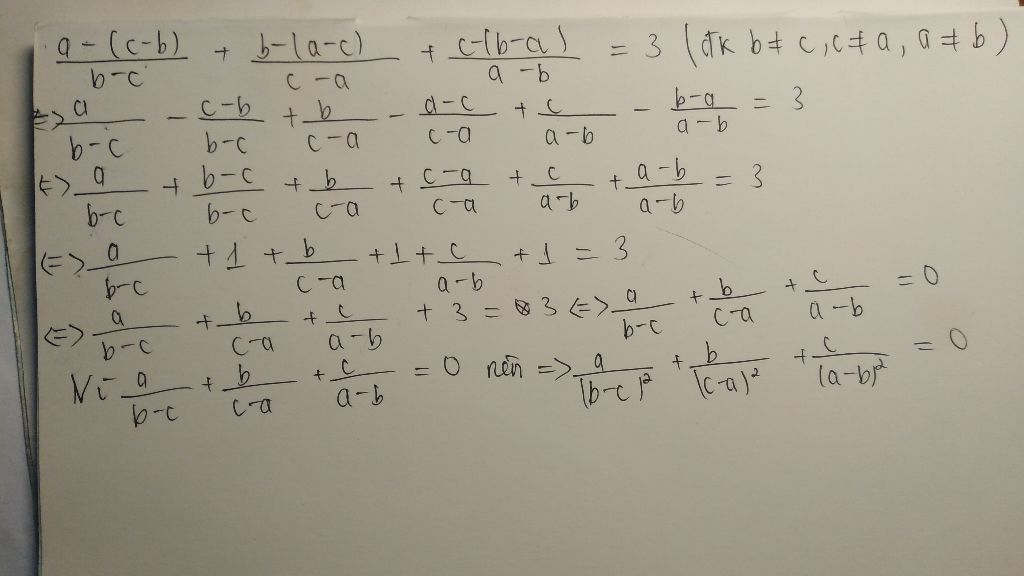 (a-(c-b))/(b-c) + (b-(a-c))/(c-a) + (c-(b-a))/(a-b) = 3 (đk b≠c, c≠a, a≠b)
<=> a/(b-c) - (c-b)/(b-c) + b/(c-a) - (a-c)/(c-a) + c/(a-b) - (b-a)/(a-b) = 3
<=> a/(b-c) + (b-c)/(b-c) + b/(c-a) + (c-a)/(c-a) + c/(a-b) + (a-b)/(a-b) = 3
<=> a/(b-c) + 1 + b/(c-a) + 1 + c/(a-b) + 1 = 3
<=> a/(b-c) + b/(c-a) + c/(a-b) + 3 = 3 <=> a/(b-c) + b/(c-a) + c/(a-b) = 0
Vì a/(b-c) + b/(c-a) + c/(a-b) = 0 nên => a/(b-c)² + b/(c-a)² + c/(a-b)² = 0